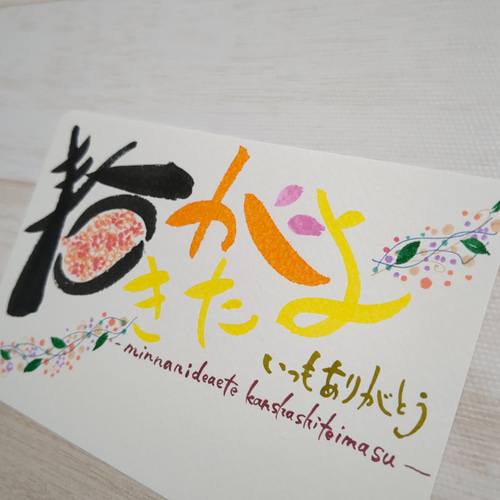 春が
きたよ
いつもありがとう
-minnanideaete kanshashiteimasu-